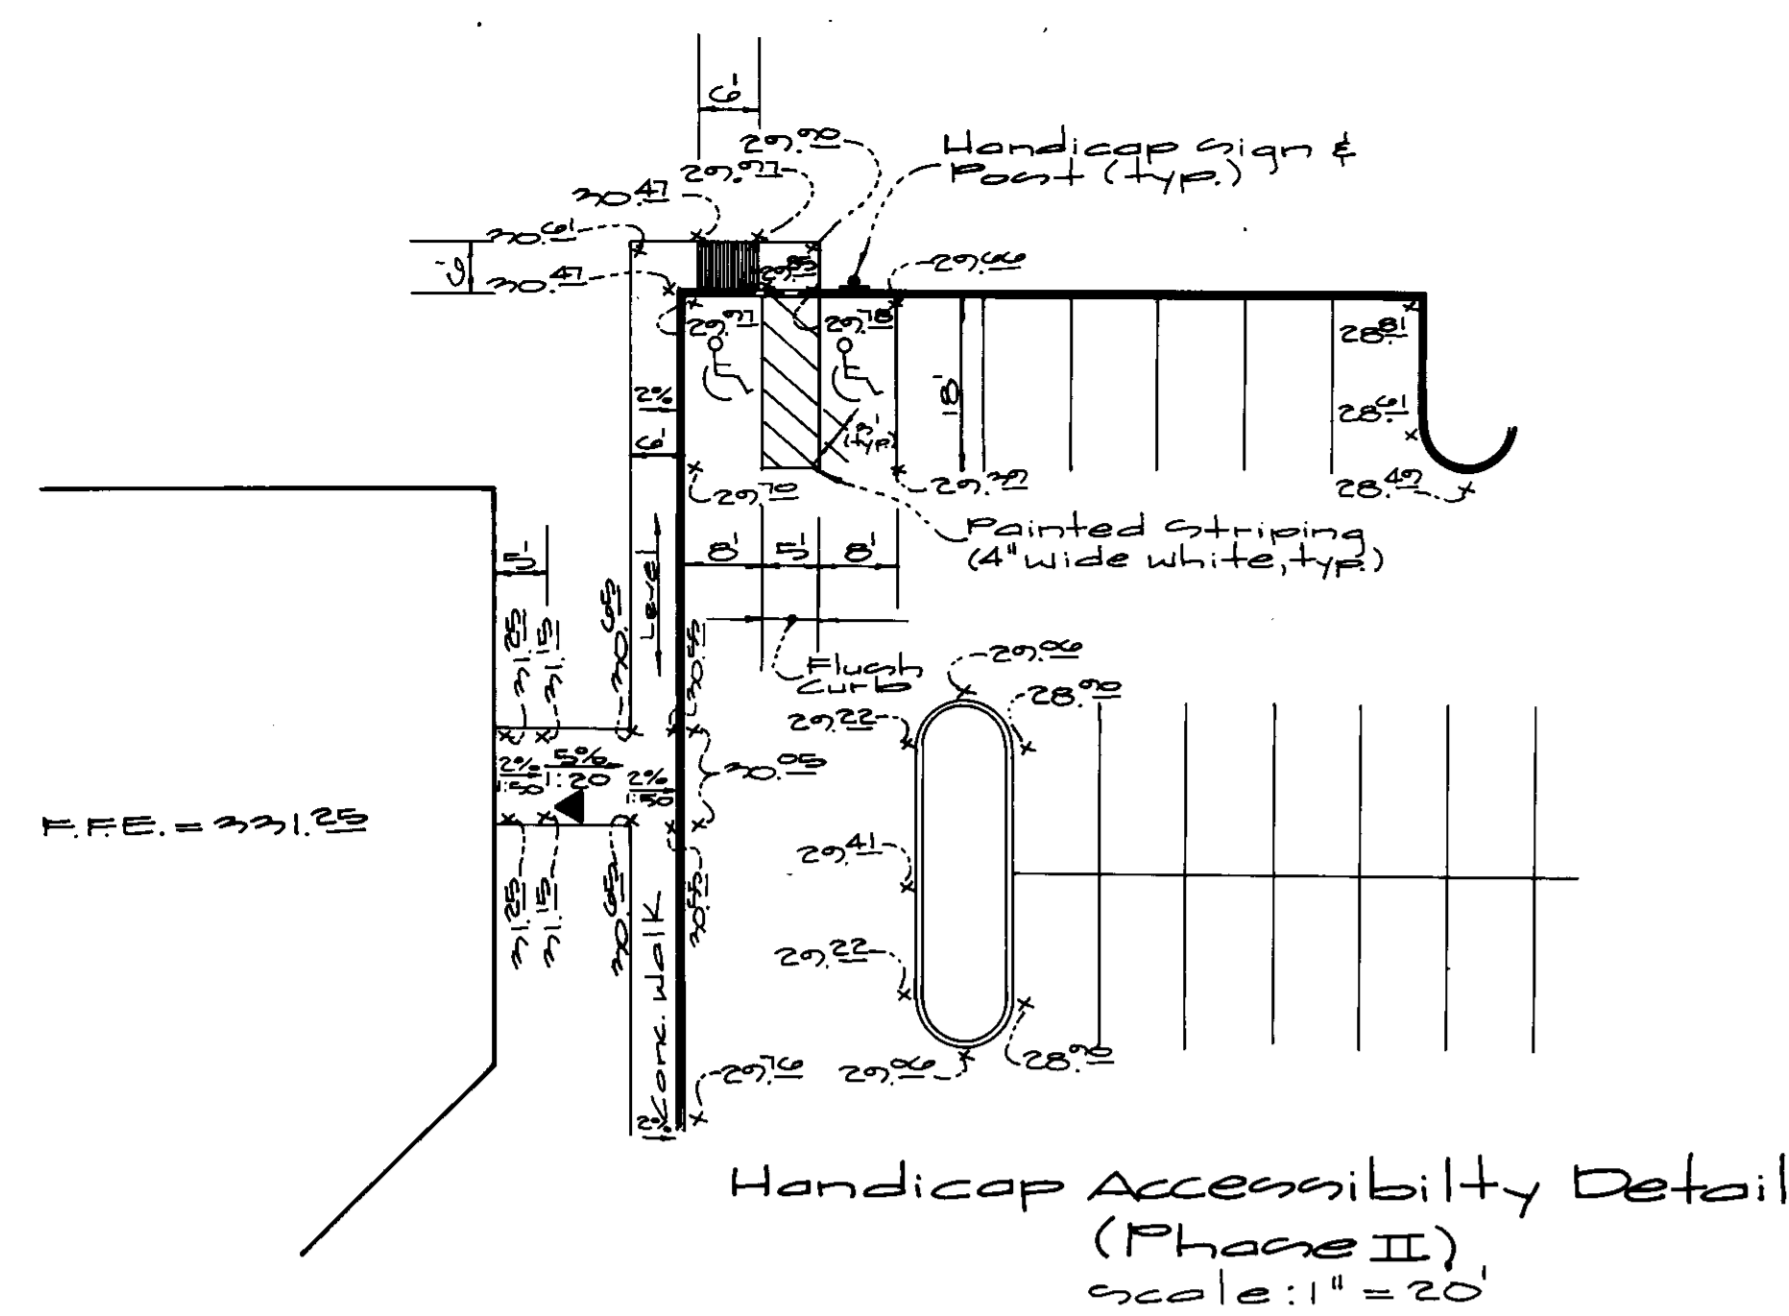 6'
29.90
Handicap Sign &
Post (typ.)
29.97
30.47
30.61
6'
30.47
29.85
29.66
29.97
29.78
28.81
18'
2%
28.61
3'
(typ.)
6'
29.70
29.39
28.49
Painted Striping
(4" wide white, typ.)
8'
5'
8'
5'
Level
31.25
31.15
30.65
30.55
Flush
Curb
29.06
28.90
29.22
2%
1:50
5%
1:20
2%
1:50
30.05
F.F.E. = 331.25
29.41
31.25
31.15
30.65
30.55
Conc. Walk
29.22
29.76
29.06
28.90
2%
Handicap Accessibilty Detail
(Phase II)
Scale: 1" = 20'